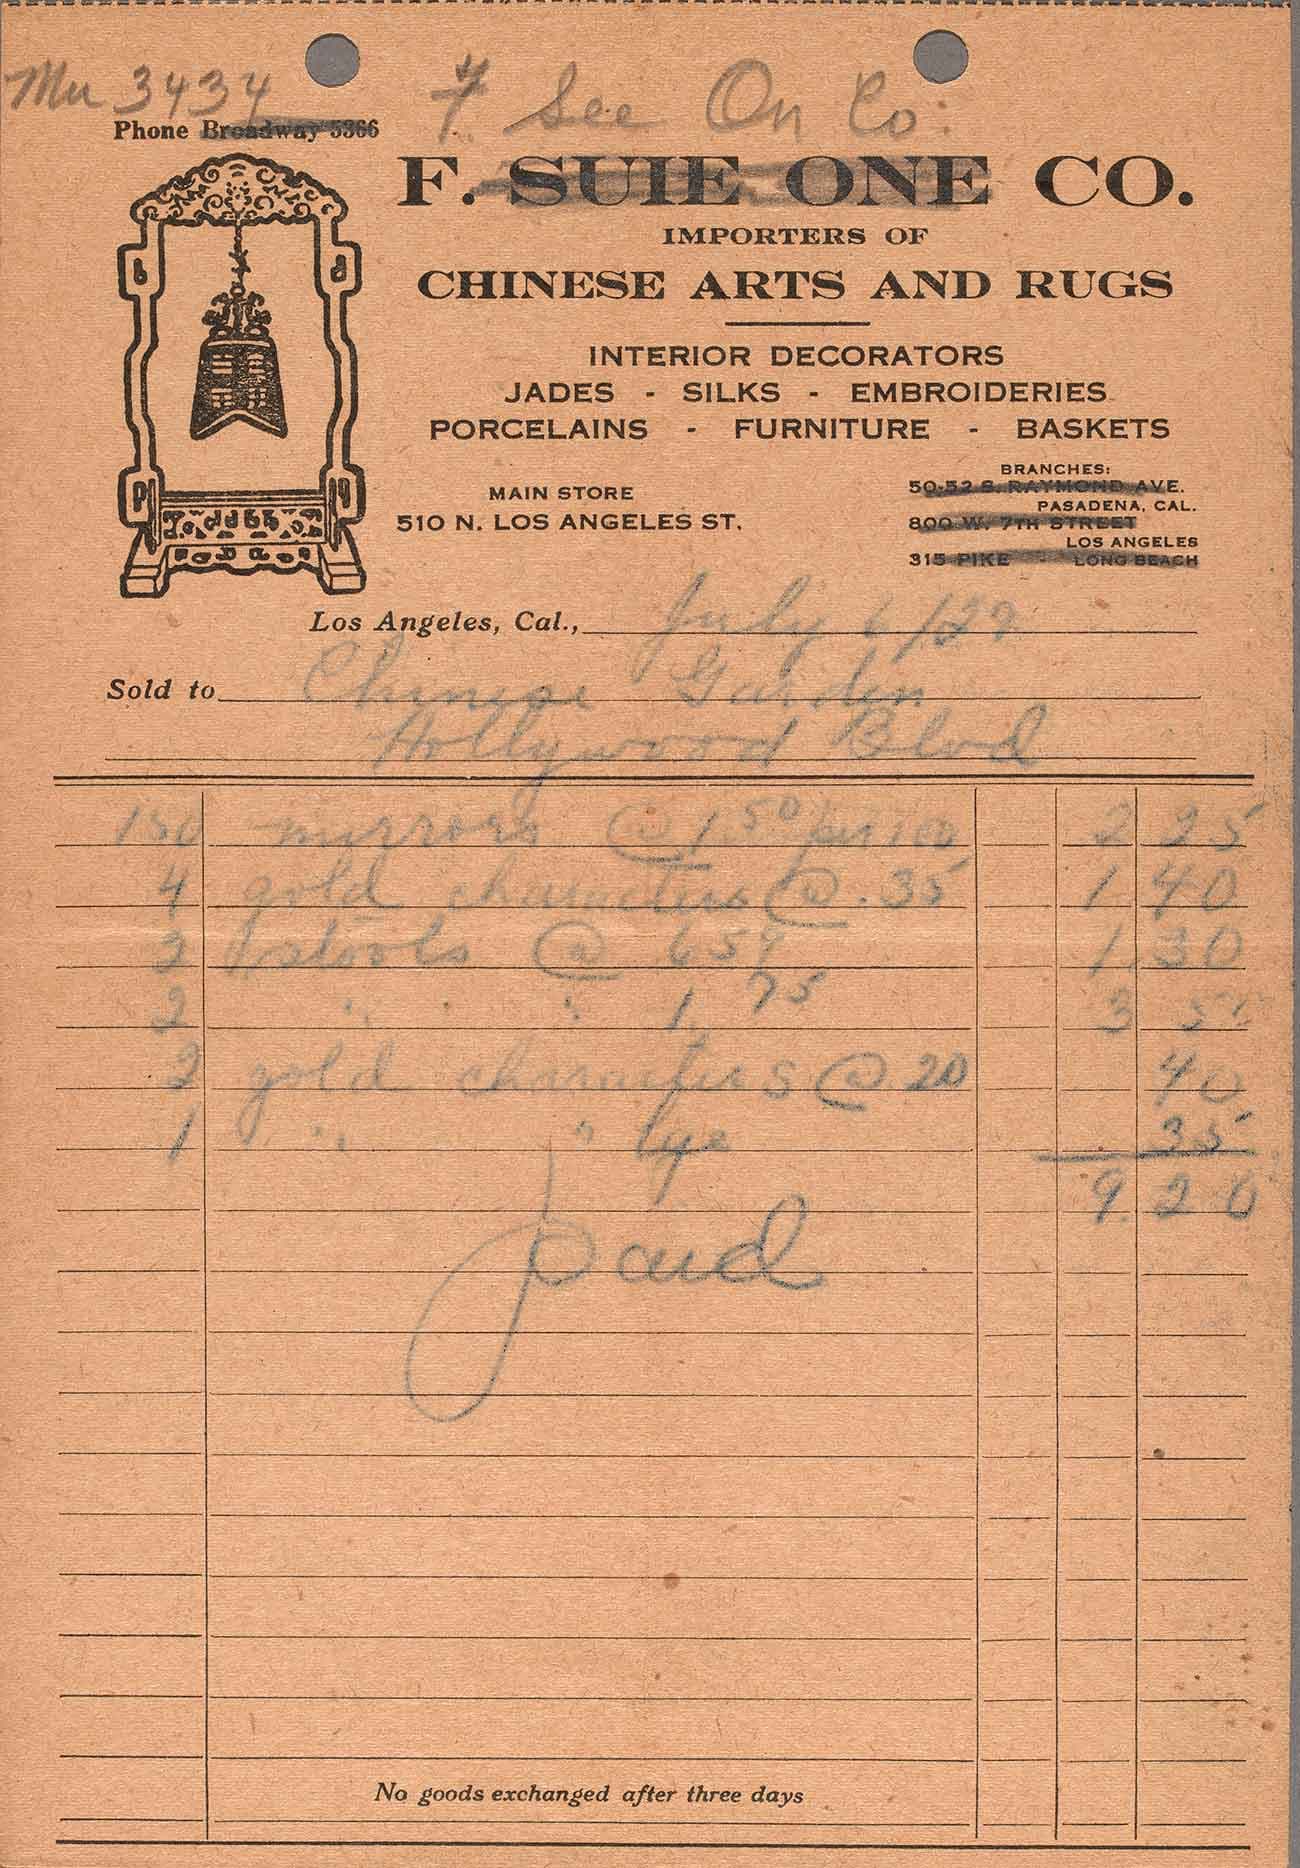 Mu 3434
F See On Co.
Phone Broadway 5366
F. SUIE ONE CO.
IMPORTERS OF
CHINESE ARTS AND RUGS
INTERIOR DECORATORS
JADES - SILKS - EMBROIDERIES
PORCELAINS - FURNITURE - BASKETS
MAIN STORE
510 N. LOS ANGELES ST.
BRANCHES:
50-52 S. RAYMOND AVE.
PASADENA, CAL.
800 W. 7TH STREET
LOS ANGELES
315 PIKE - LONG BEACH
Los Angeles, Cal., July 6/29
Sold to Chinese Garden
Hollywood Blvd
150 mirrors @ 1.50 per 100 2 25
4 gold characters @ .35 1 40
2 stools @ 65¢ 1.30
2 " " " 1.75 3 50
2 gold characters @ .20 40
1 " " lge 35
9.20
Paid
No goods exchanged after three days